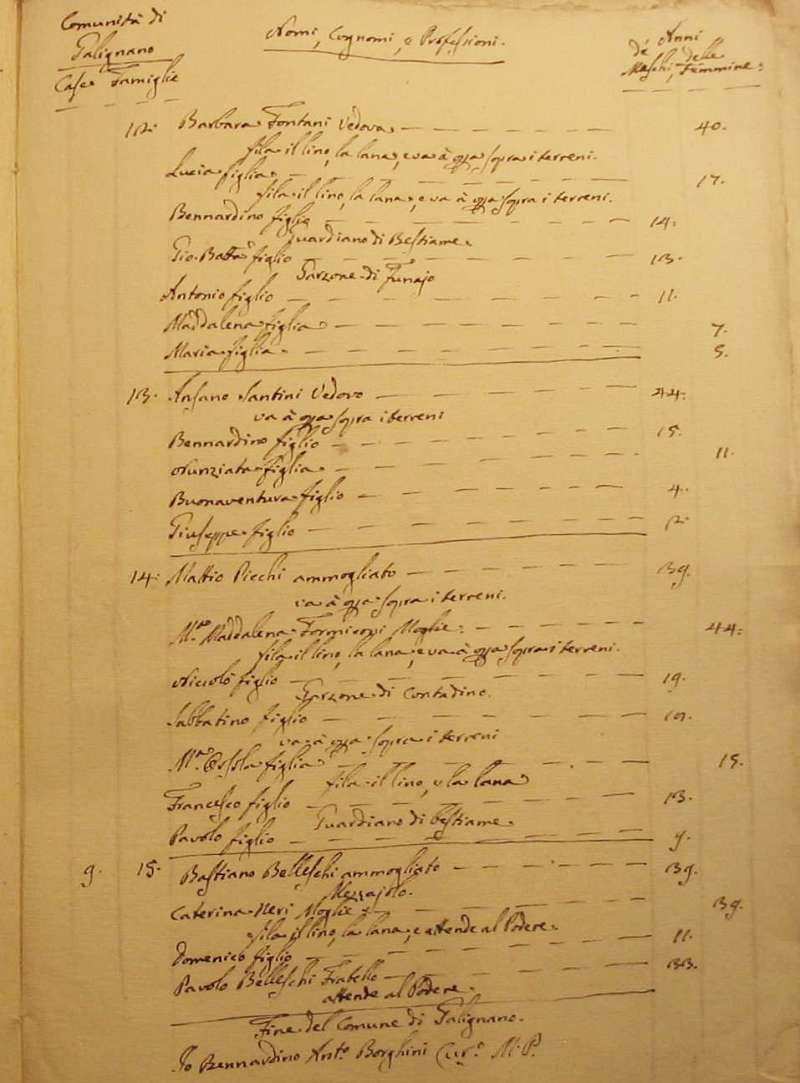 Comunità di
Galignano
Case Famiglie
Nomi, Cognomi, e Professioni.
Anni
de' Maschi, delle Femmine.
12. Barbara Fontani Vedova 40.
fila il lino, la lana, e va à opa sopra i terreni.
Lucia figlia 17.
fila il lino, la lana, e va à opa sopra i terreni.
Bennardino figlio 14.
Guardiano di Bestiame.
Gio. Batta figlio 13.
Garzone di Funajo
Antonio figlio 11.
Maddalena figlia 7.
Maria figlia 5.
13. Ansano Santini Vedovo 44.
va à opa sopra i terreni
Bennardino figlio 15.
Nunziata figlia 11.
Buonaventura figlio 4.
Giuseppe figlio 2.
14. Mattio Picchi ammogliato 39.
va à opa sopra i terreni.
Mª. Maddalena Moglie 44.
fila il lino, la lana, e va à opa sopra i terreni.
Niccolò figlio 19.
Garzone di Contadino.
Sabbatino figlio
va à opa sopra i terreni
Mª. figlia 15.
fila il lino, e la lana
Francesco figlio 13.
Guardiano di bestiame.
Pavolo figlio
9. 15. Bastiano Belleschi ammogliato 39.
Mezzajolo.
Caterina Neri Moglie 39.
fila il lino, la lana, e attende al Podere.
Domenico figlio 11.
Pavolo Belleschi Fratello 33.
attende al Podere.
Fine del Comune di Galignano.
Io Bennardino Anto. Borghini Curo. M. P.